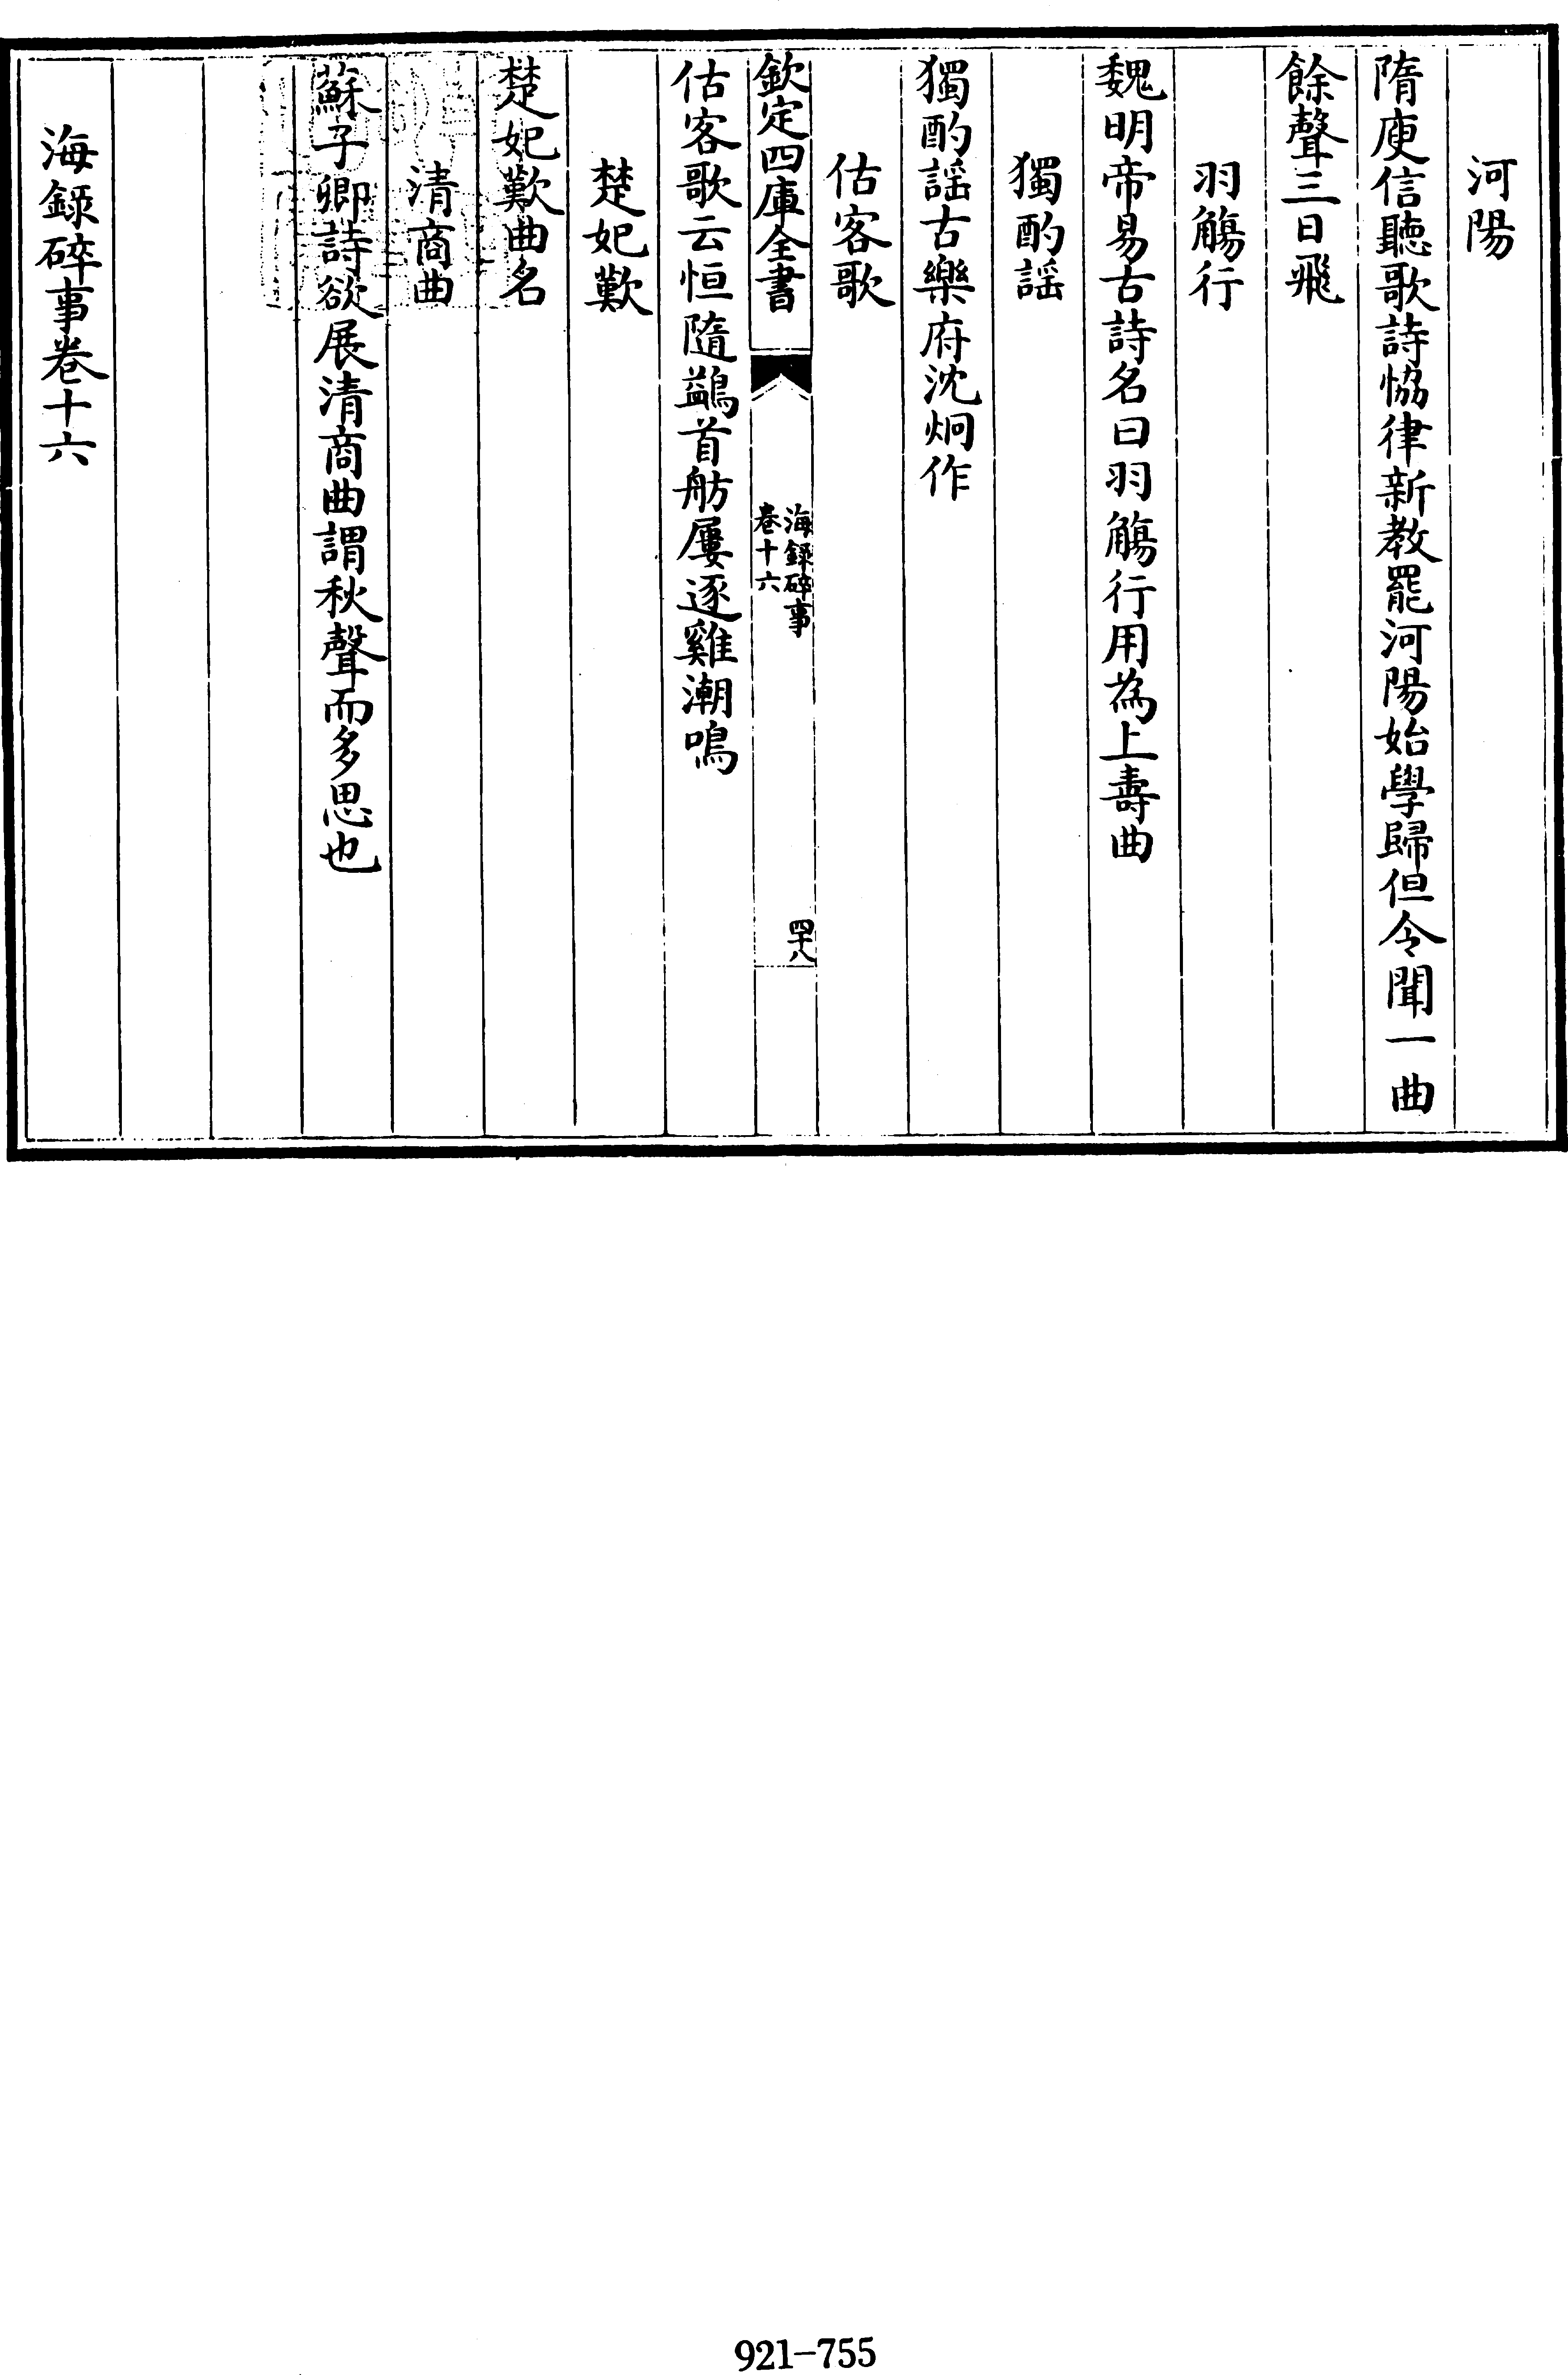 河陽
隋庾信聽歌詩恊律新教罷河陽始學歸但令聞一曲
餘聲三日飛
羽觴行
魏明帝易古詩名曰羽觴行用為上壽曲
獨酌謡
獨酌謡古樂府沈炯作
估客歌
欽定四庫全書
海録碎事
卷十六
四十八
估客歌云恒隨鷁首舫屢逐雞潮鳴
楚妃歎
楚妃歎曲名
清商曲
蘇子卿詩欲展清商曲謂秋聲而多思也
海録碎事卷十六
921-755